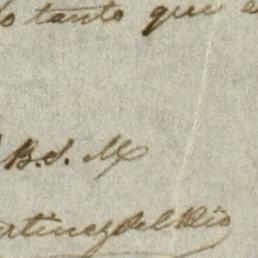 tanto que
B. S. M
rtinez del Rio